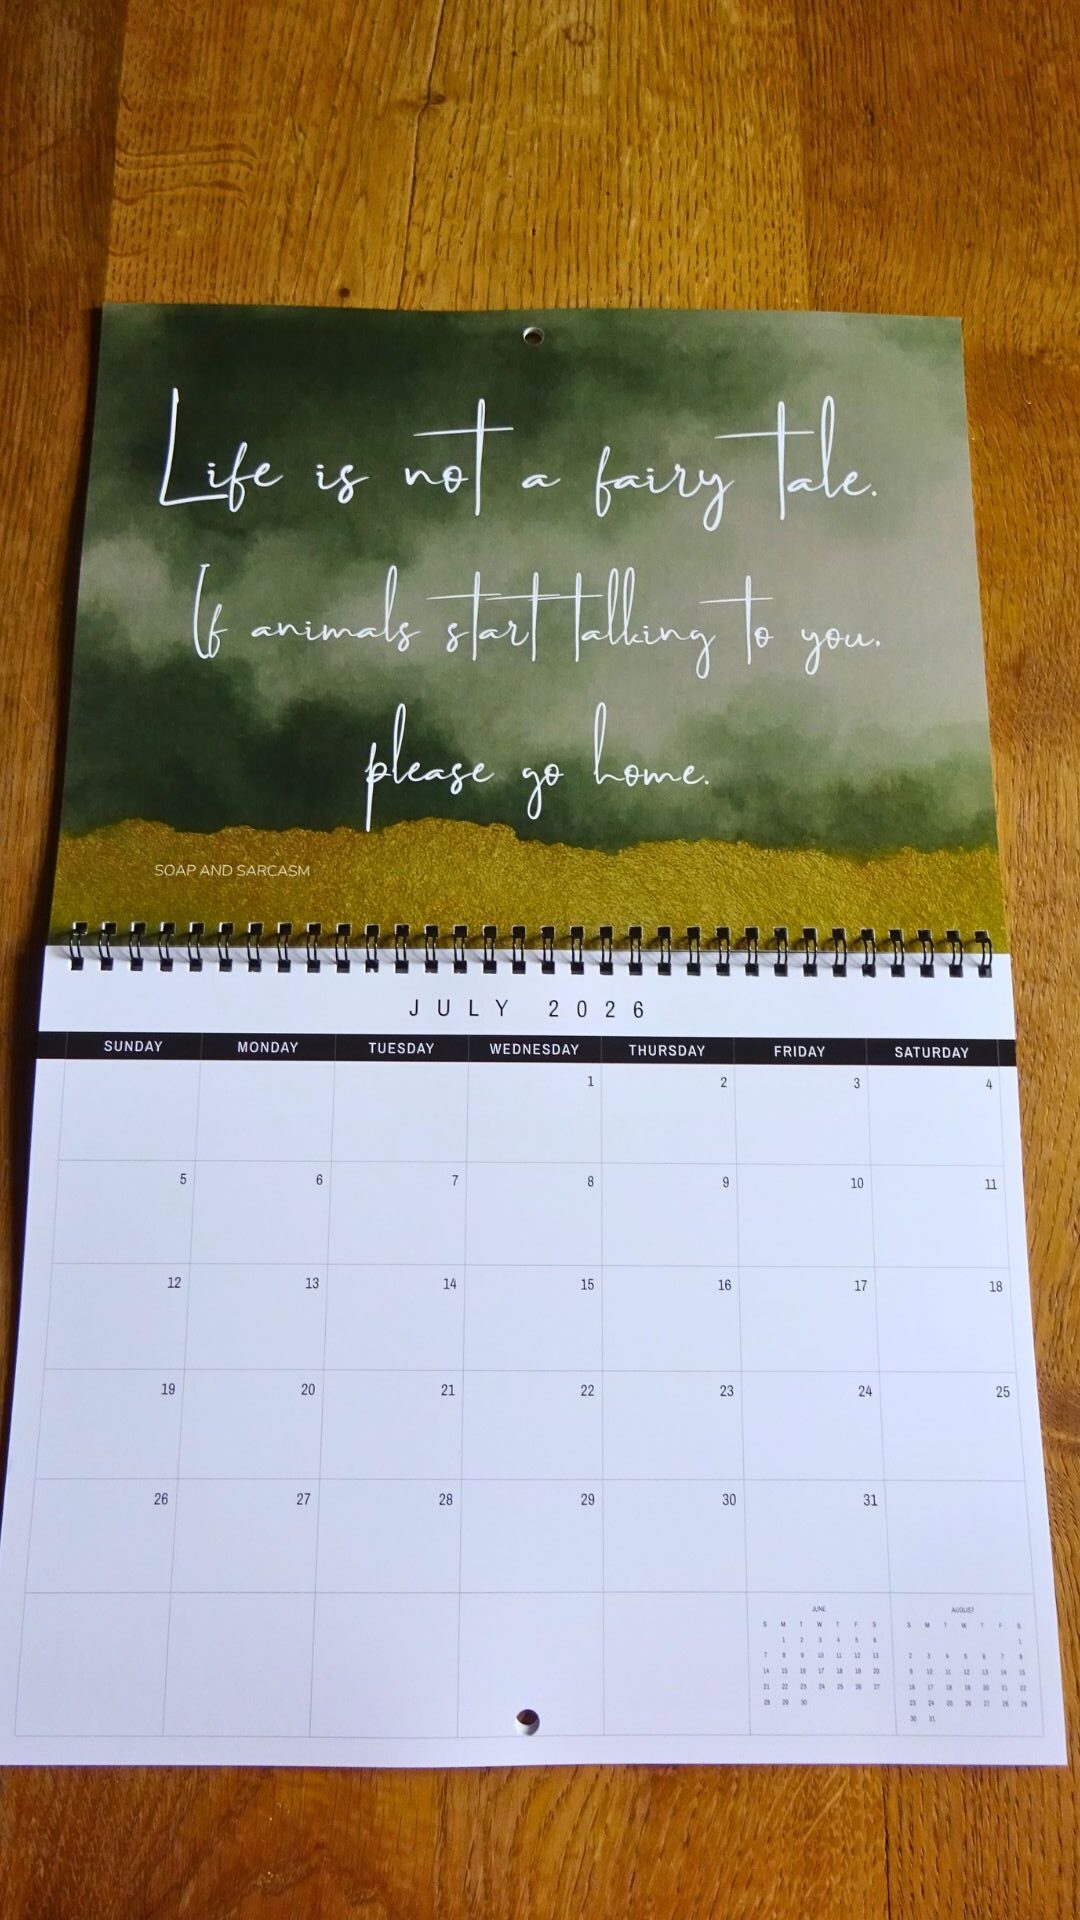 Life is not a fairy tale.
If animals start talking to you,
please go home.
SOAP AND SARCASM
JULY 2026
SUNDAY MONDAY TUESDAY WEDNESDAY THURSDAY FRIDAY SATURDAY
1 2 3 4
5 6 7 8 9 10 11
12 13 14 15 16 17 18
19 20 21 22 23 24 25
26 27 28 29 30 31
JUNE
S M T W T F S
1 2 3 4 5 6
7 8 9 10 11 12 13
14 15 16 17 18 19 20
21 22 23 24 25 26 27
28 29 30
AUGUST
S M T W T F S
1
2 3 4 5 6 7 8
9 10 11 12 13 14 15
16 17 18 19 20 21 22
23 24 25 26 27 28 29
30 31